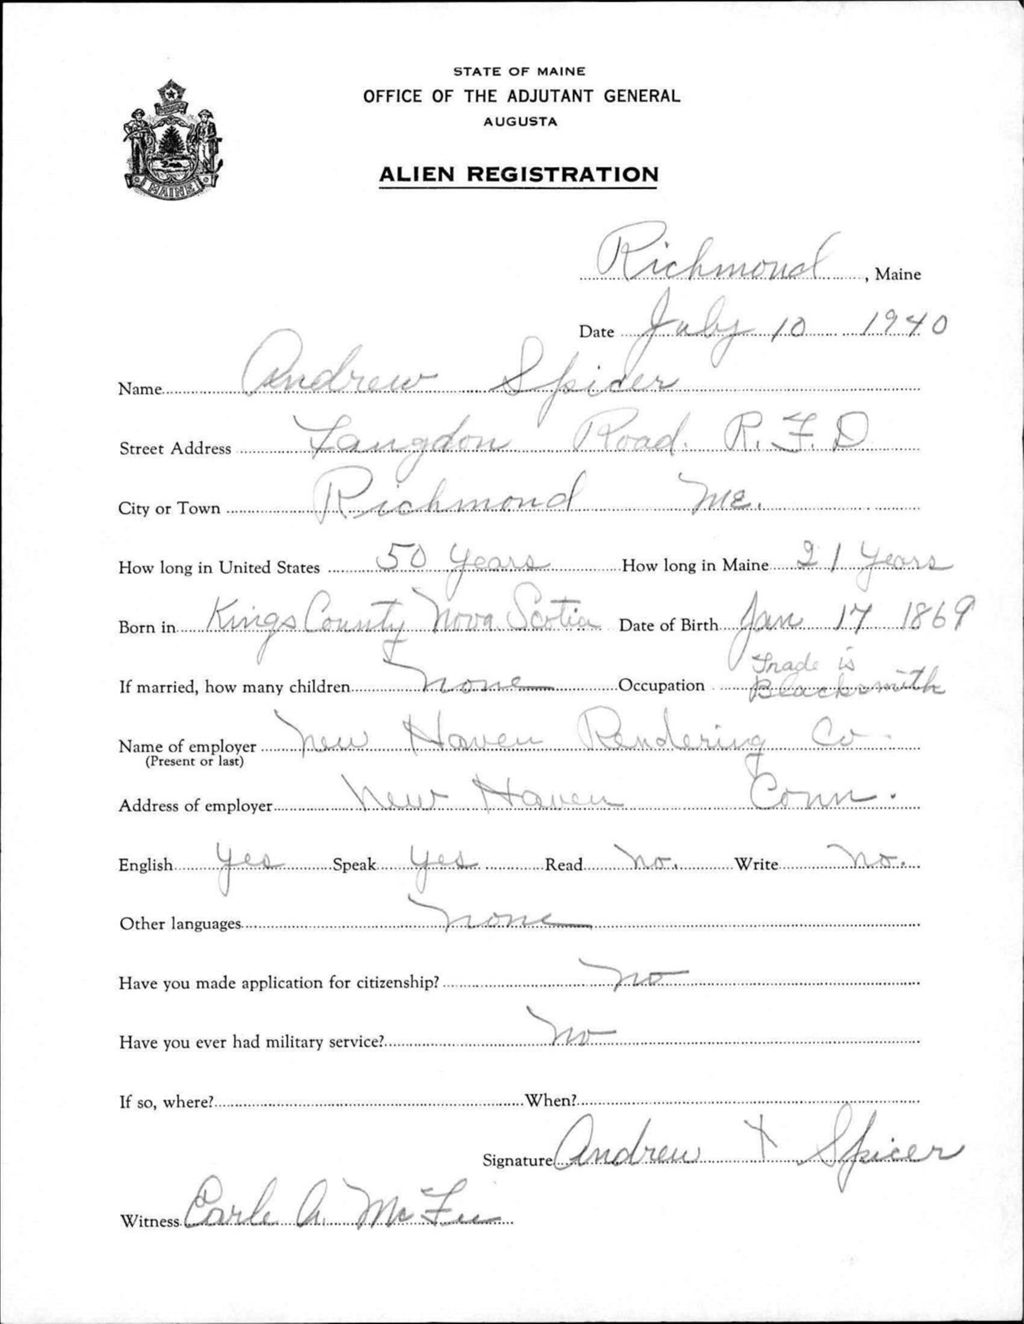 STATE OF MAINE
OFFICE OF THE ADJUTANT GENERAL
AUGUSTA
ALIEN REGISTRATION
MAINE
Richmond, Maine
Date July 10 1940
Name Andrew Spicer
Street Address Langdon Road. R.F.D
City or Town Richmond Me.
How long in United States 50 Years How long in Maine 21 Years
Born in Kings County Nova Scotia Date of Birth Jan 17 1869
If married, how many children None Occupation Trade is Blacksmith
Name of employer New Haven Rendering Co
(Present or last)
Address of employer New Haven Conn.
English Yes Speak Yes Read No. Write No.
Other languages None
Have you made application for citizenship? No
Have you ever had military service? No
If so, where? When?
Signature Andrew X Spicer
Witness Earle A. McFee